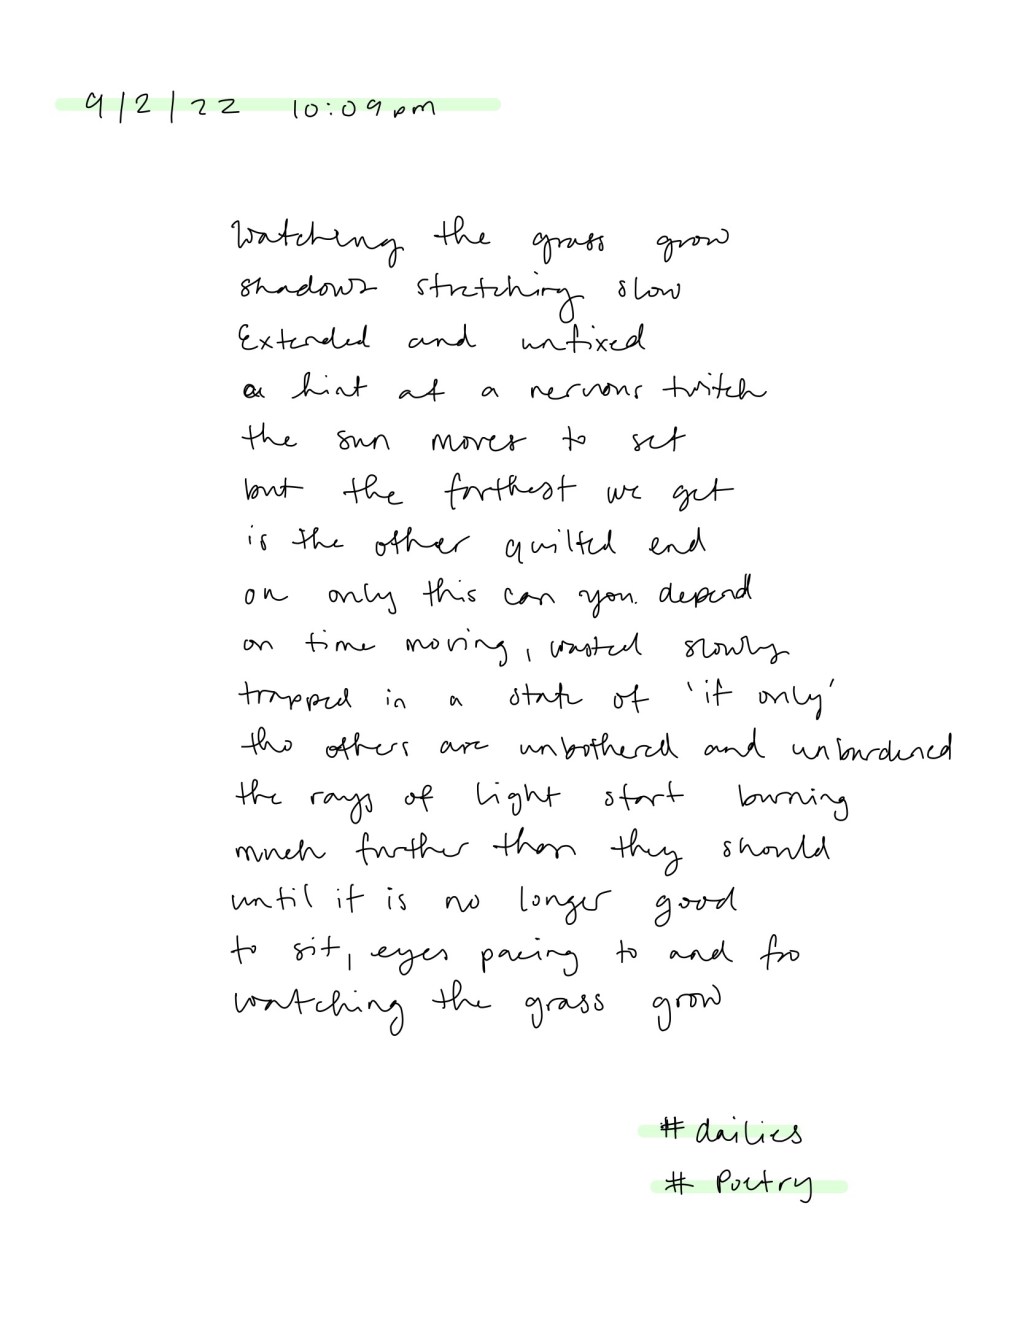 9/2/22 10:09pm
Watching the grass grow
shadows stretching slow
Extended and unfixed
a hint at a nervous twitch
the sun moves to set
but the farthest we get
is the other quilted end
on only this can you. depend
on time moving, wasted slowly
trapped in a state of 'if only'
tho others are unbothered and unburdened
the rays of light start burning
much further than they should
until it is no longer good
to sit, eyes pacing to and fro
watching the grass grow
# dailies
# Poetry